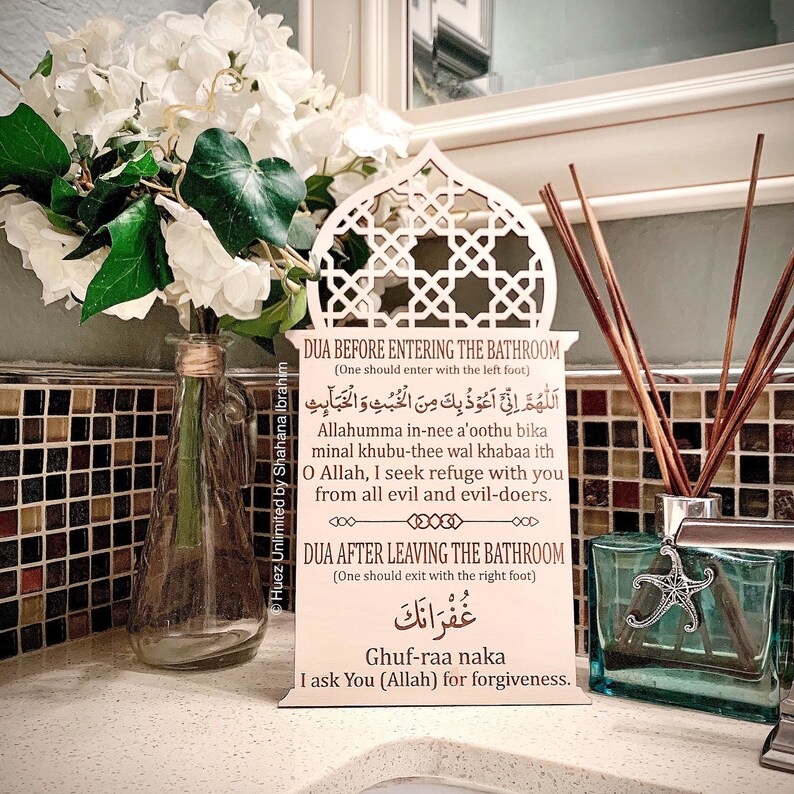 DUA BEFORE ENTERING THE BATHROOM
(One should enter with the left foot)
اَللّٰهُمَّ اِنِّیْ اَعُوْذُ بِكَ مِنَ الْخُبُثِ وَالْخَبَآئِثِ
Allahumma in-nee a'oothu bika
minal khubu-thee wal khabaa ith
O Allah, I seek refuge with you
from all evil and evil-doers.
DUA AFTER LEAVING THE BATHROOM
(One should exit with the right foot)
غُفْرَانَكَ
Ghuf-raa naka
I ask You (Allah) for forgiveness.
© Huez Unlimited by Shahana Ibrahim